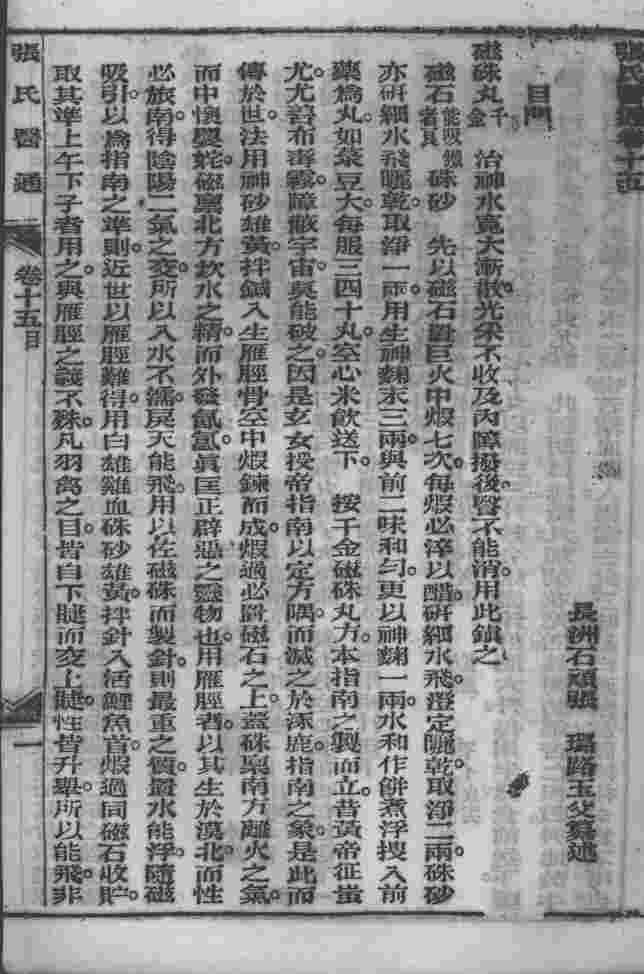 張氏醫通卷十五
長洲石頑張 璐路玉父纂述
目門
磁硃丸千金 治神水寬大漸散光采不收及內障撥後瞖不能消用此鎮之
磁石能吸鍼者良硃砂 先以磁石置巨火中煅七次每煅必淬以醋研細水飛澄定曬乾取淨二兩硃砂
亦研細水飛曬乾取淨一兩用生神麴末三兩與前二味和勻更以神麴一兩水和作餅煮浮搜入前
藥爲丸如菉豆大每服三四十丸空心米飲送下 按千金磁硃丸方本指南之製而立昔黃帝征蚩
尤尤善布毒霧障蔽宇宙莫能破之因是玄女授帝指南以定方隅而滅之於涿鹿指南之象是此而
傳於世法用神砂雄黃拌鍼入生雁脛骨空中煅鍊而成煅過必置磁石之上蓋硃稟南方離火之氣
而中懷嬰姹磁稟北方坎水之精而外發氤氳眞匡正辟惡之靈物也用雁脛者以其生於漠北而性
必旅南得陰陽二氣之交所以入水不濡戾天能飛用以佐磁硃而製針則最重之質置水能浮隨磁
吸引以爲指南之準則近世以雁脛難得用白雄雞血硃砂雄黃拌針入活鯉魚首煅過同磁石收貯
取其準上午下子者用之與雁脛之義不殊凡羽禽之目皆自下睫而交上睫性皆升舉所以能飛非
張氏醫通
卷十五目
一